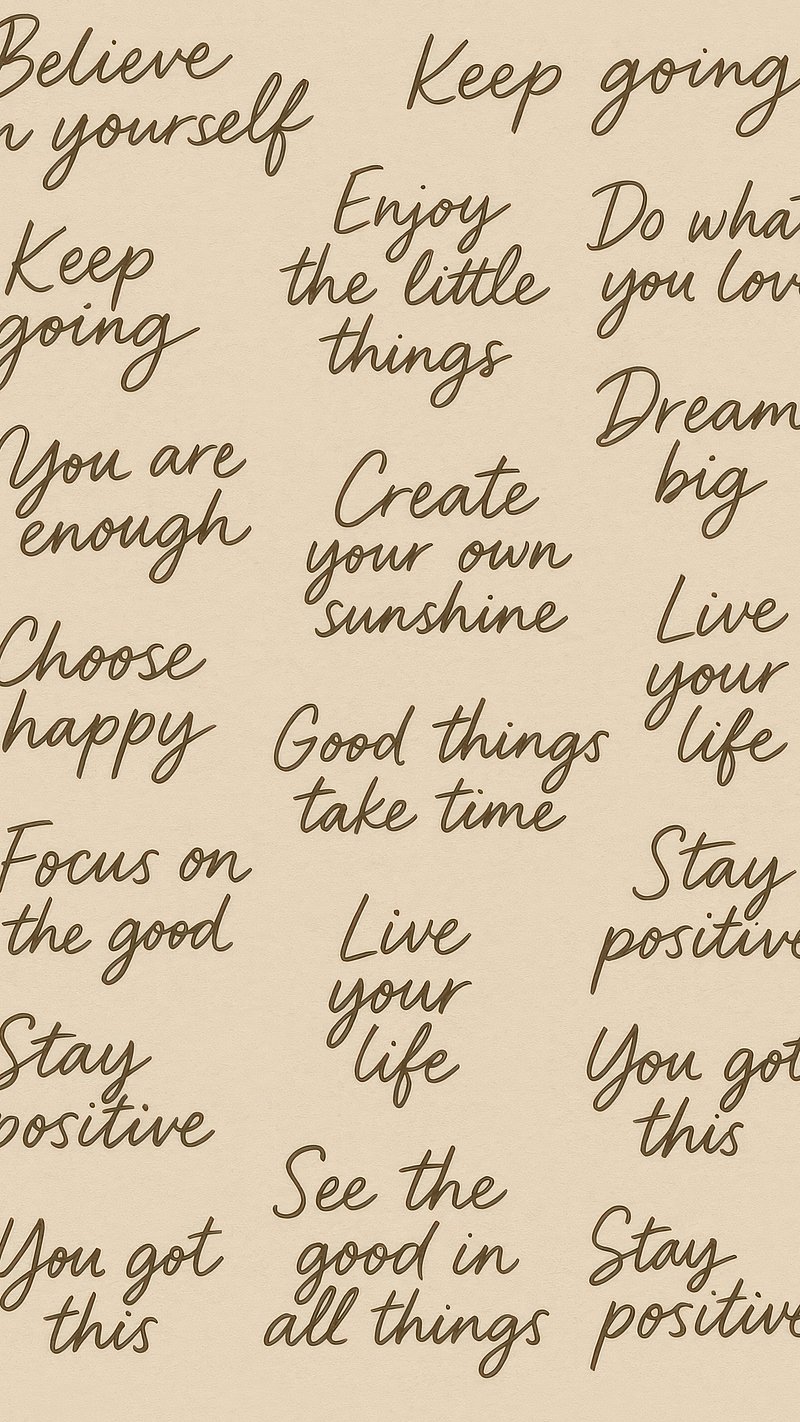 Believe
n yourself
Keep going
Keep
going
Enjoy
the little
things
Do what
you love
You are
enough
Create
your own
sunshine
Dream
big
Choose
happy
Good things
take time
Live
your
life
Focus on
the good
Live
your
life
Stay
positive
Stay
positive
See the
good in
all things
You got
this
You got
this
Stay
positive